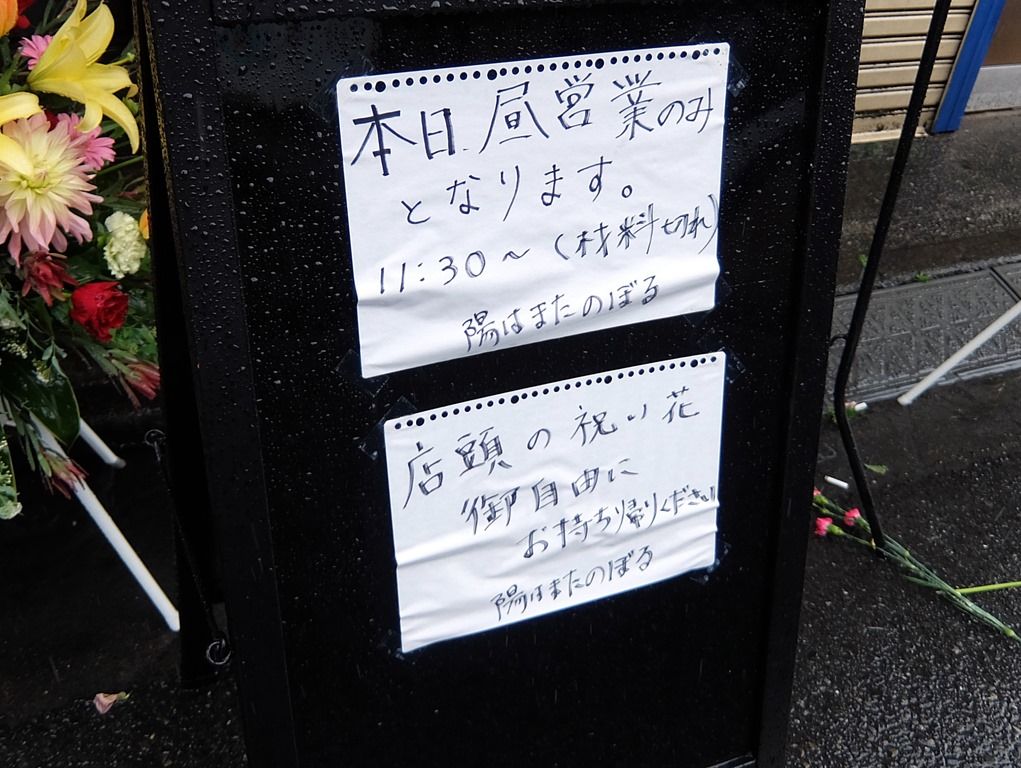 本日昼営業のみ
となります。
11:30〜(材料切れ)
陽はまたのぼる
店頭の祝い花
御自由に
お持ち帰りください
陽はまたのぼる